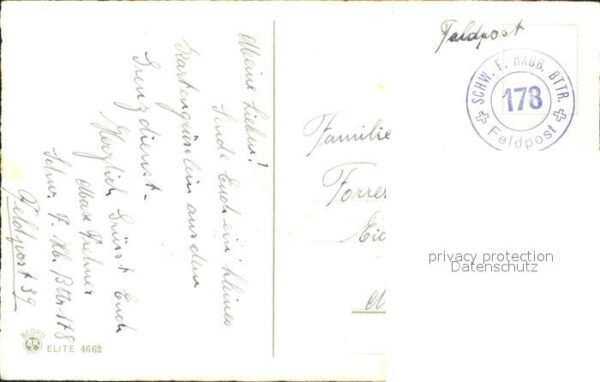 Meine Lieben!
Sende Euch ein kleines
Kartengrüsslein aus dem
Grenzdienst.
Herzlich Grüsst Euch
Max
Schw. F. Hb. Bttr 178
Feldpost 39
BRDRD
BR
ELITE 4662
Feldpost
SCHW. F. HAUB. BTTR.
178
Feldpost
Familie
Forrer
privacy protection
Datenschutz